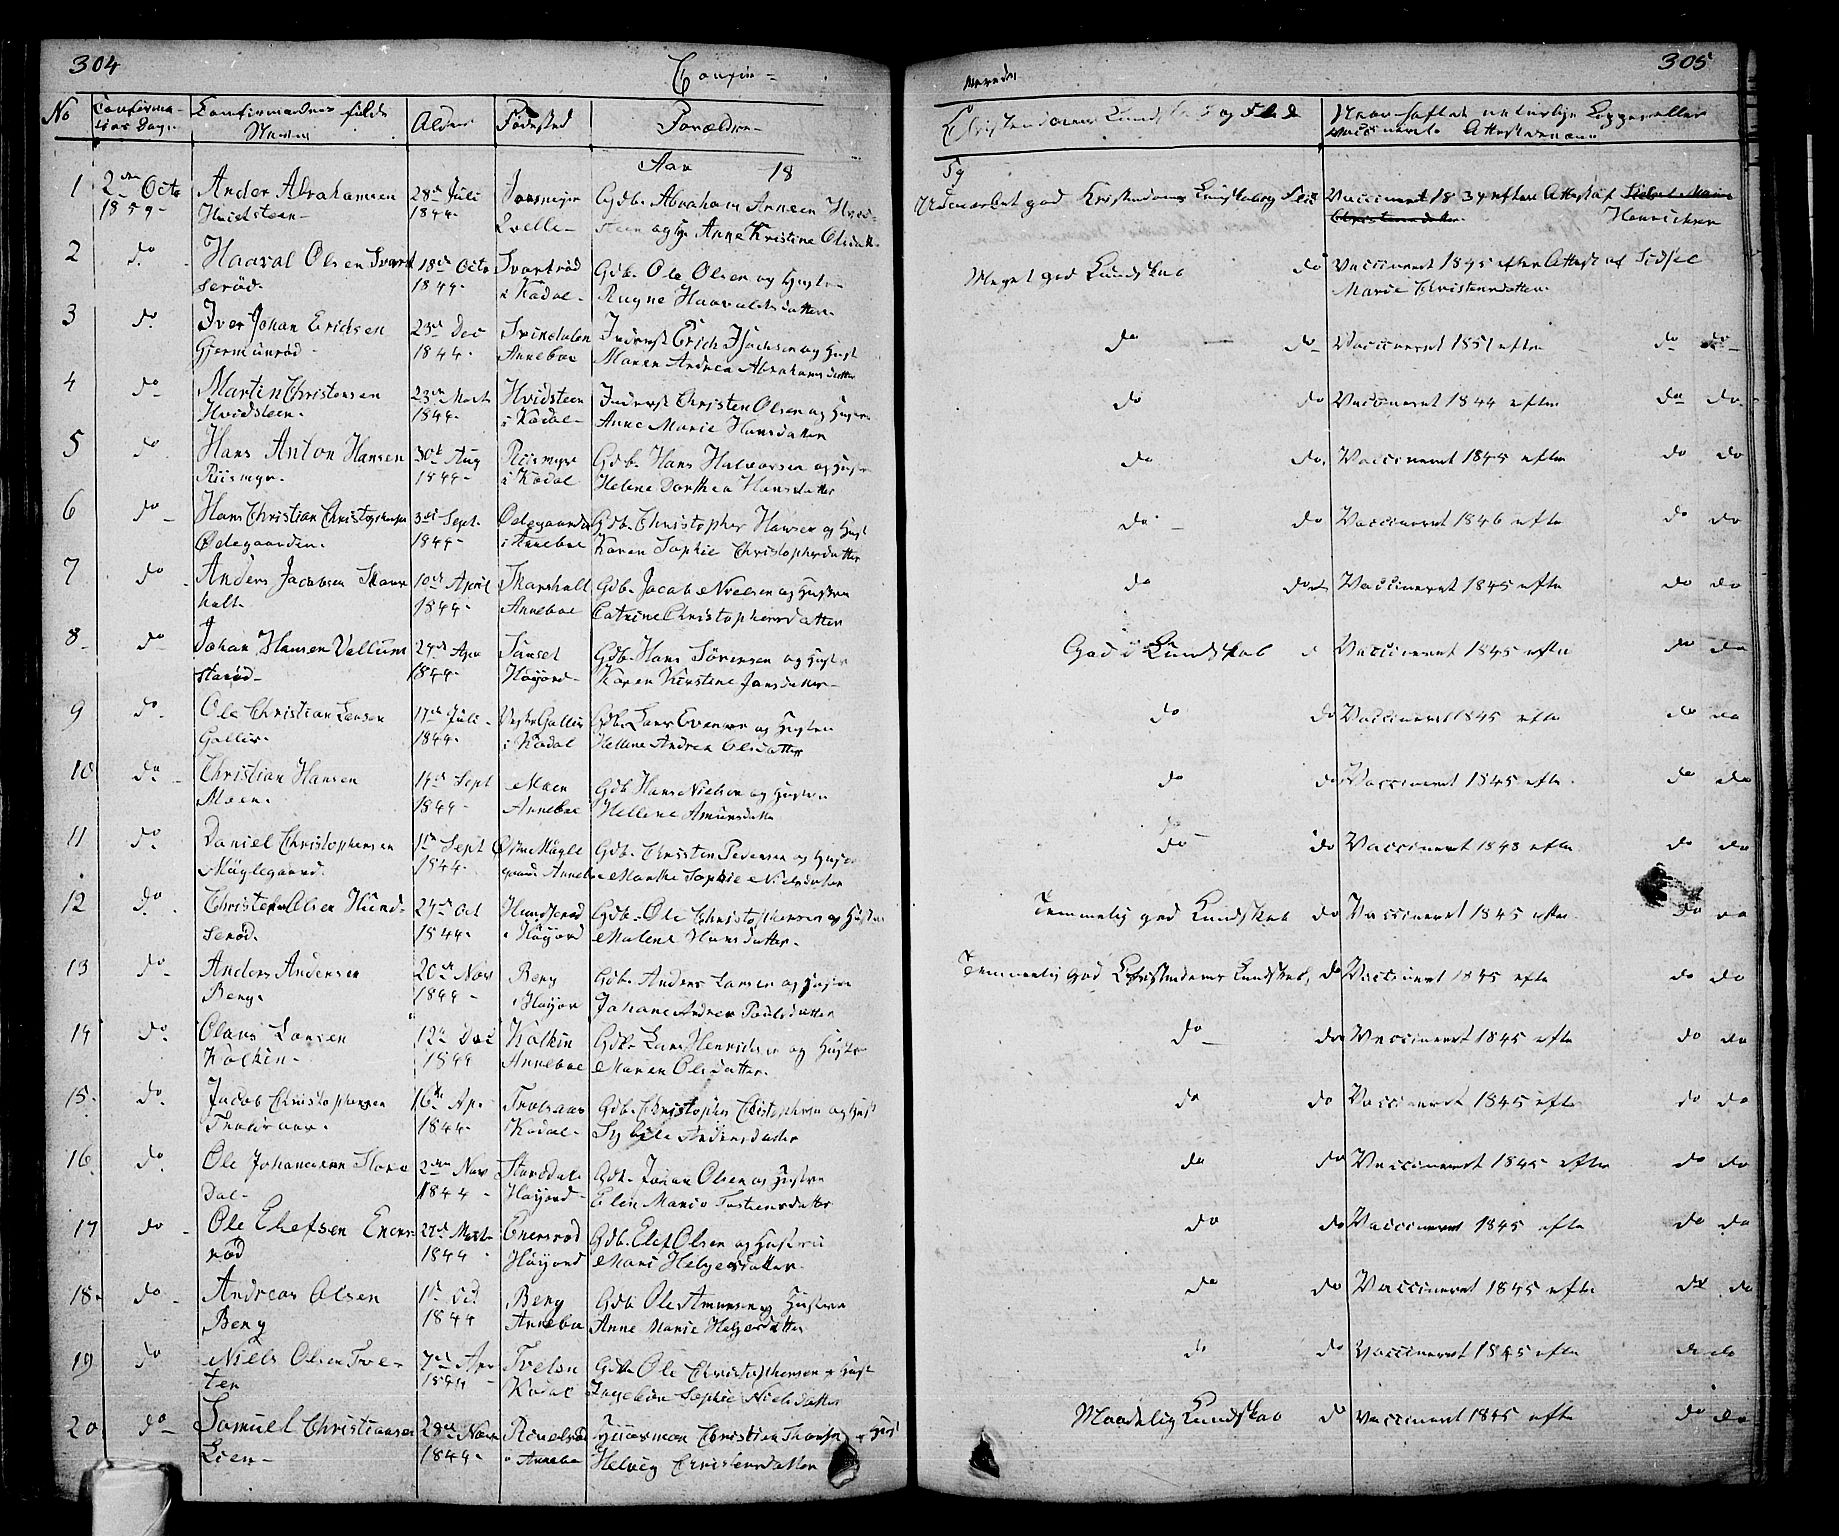 304
Confir-
No Confirma- Confirmandens fulde Alder Fødested Forældre
tions Dag. Navn
Aar 18
1 2den Octo Anders Abrahamsen 28de Juli Gdb. Abraham Hvid-
1859- Hvidsteen- 1844- Qvelle- steen og H. Anne Kristine Olsdatt.
2 do. Haaval Olsen Svart 18de Octo Svartrød Gdb. Ole Olsen og Hustru
serød. 1844- i Kodal- Rugne Haavaldsdatter
3 do. Iver Johan Erichsen 23de Dec Svindalen Inderst Erich Isachsen og Hust
Gjermunrød- 1844- Anneboe Maren Andrea Abrahamsdatter
4 do- Martin Christensen 23de Mart Hvidsteen Inderst Christen Olsen og Hustru
Hvidsteen- 1844- i Kodal- Anne Marie Hansdatter
5 do. Hans Anton Hansen 30te Aug Riismyr Gdb. Hans Halvorsen og Hustru
Riismyr- 1844- i Kodal Helene Dorthea Hansdatter
6 do- Hans Christian Christophersen 3die Sept. Ødegaarden Gdb. Christopher Hansen og Hust
Ødegaarden. 1844- i Anneboe Karen Sophie Christophersdatter
7 do Anders Jacobsen Skors 10de April Skorshalt Gdb. Jacob Nielsen og Hustru
halt- 1844- Anneboe Catrine Christophersdatter
8 do- Johan Hansen Vellum 24de Apr Gdb. Hans Sørensen og Hustr
starød- 1844- Høyord- Karen Kirstine Jansdatter-
9 do. Ole Christian Larsen 17de Juli- Vestre Gallis Gdb. Lars Evensen og Hustru
Gallis- 1844- i Kodal Hellene Andrea Olsdatter
10 do- Christian Hansen 14de Sept Moen Gdb Hans Nielsen og Hustru
Moen. 1844- Anneboe Hellene Amunsdatter
11 do. Daniel Christophersen 11te Sept Østre Møgle Gdb. Christen Pedersen og Hustru
Møglegaard. 1844- gaard Anneboe Marthe Sophie Nielsdatter
12 do. Christen Olsen Hund- 24de Oct Hundserød Gdb. Ole Christophersen og Hustru
serød. 1844- i Høyjord Malene Hansdatter-
13 do- Anders Andersen 20de Nov Berg Gdb. Anders Larsen og Hustru
Berg. 1844- i Høyjor Johane Andrea Poulsdatter
14 do. Olaus Larsen 12te Dec Kolkin Gdb- Lars Henrichsen og Hustru
Kolkin- 1844 Anneboe Maren Olsdatter.
15. do. Jacob Christophersen 16de Apr Trolsaas Gdb. Christopher Christophersen og Hust
Trolsaas. 1844- Kodal- Sybille Andersdatter
16 do. Ole Johannesen Stors 2den Nov Storsdal Gdb. Johan Olsen og Hustru
Dal- 1844- Høyjord- Elen Maria Torstensdatter
17 do- Ole Elefsen Eners- 27de Marts Enersrød Gdb. Elef Olsen og Hustru
rød 1844 Høyjord Mari Helgesdatter-
18. do- Andreas Olsen 1te Oct Berg Gdb Ole Amunsen og Hustru
Berg 1844 Anneboe Anne Marie Helgesdatter
19 do Niels Olsen Tve- 7de Apr Tveten Gdb. Ole Christophersen og Hust
ten 1844 Kodal Ingeborg Sophie Nielsdatter
20 do- Samuel Christiansen 28de Nov Huusman Christian og Hust
Lien- 1844- i Anneboe Helvig Christensdatter
305
merede.
Christendoms Kundskab og Flid Naar haft de naturlige Kopper eller
vaccineret. Attesternes
59
Udmærket god Kristendoms Kundskab og Flid Vaccineret 1834 efter Attest af Sidsel Marie
Christensdatter. Henrichsen
Meget god Kundskab do Vaccineret 1845 efter Attest af Sidsel
Marie Christensdatter.
do - do- Vaccineret 1851 efter do do-
do do Vaccineret 1844 efter do do-
do do. Vaccineret 1845 efter do do
do- do Vaccineret 1846 efter do do
do do Vaccineret 1845 efter do do
God Kundskab Vaccineret 1845 efter do do
do do Vaccineret 1845 efter do do
do do Vaccineret 1845 efter do do
do- do Vaccineret 1843 efter do do
Temmelig god Kundskab do Vaccineret 1845 efter do do
Temmelig god Christendoms Kundskab, do Vaccineret 1845 efter do do
do- do Vaccineret 1845 efter do do
do do Vaccineret 1845 efter do do
do do Vaccineret 1845 efter do do
do do Vaccineret 1845 efter do do
do do Vaccineret 1845 efter do do
do do Vaccineret 1845 efter do do
Maadelig Kundskab do Vaccineret 1845 efter do do